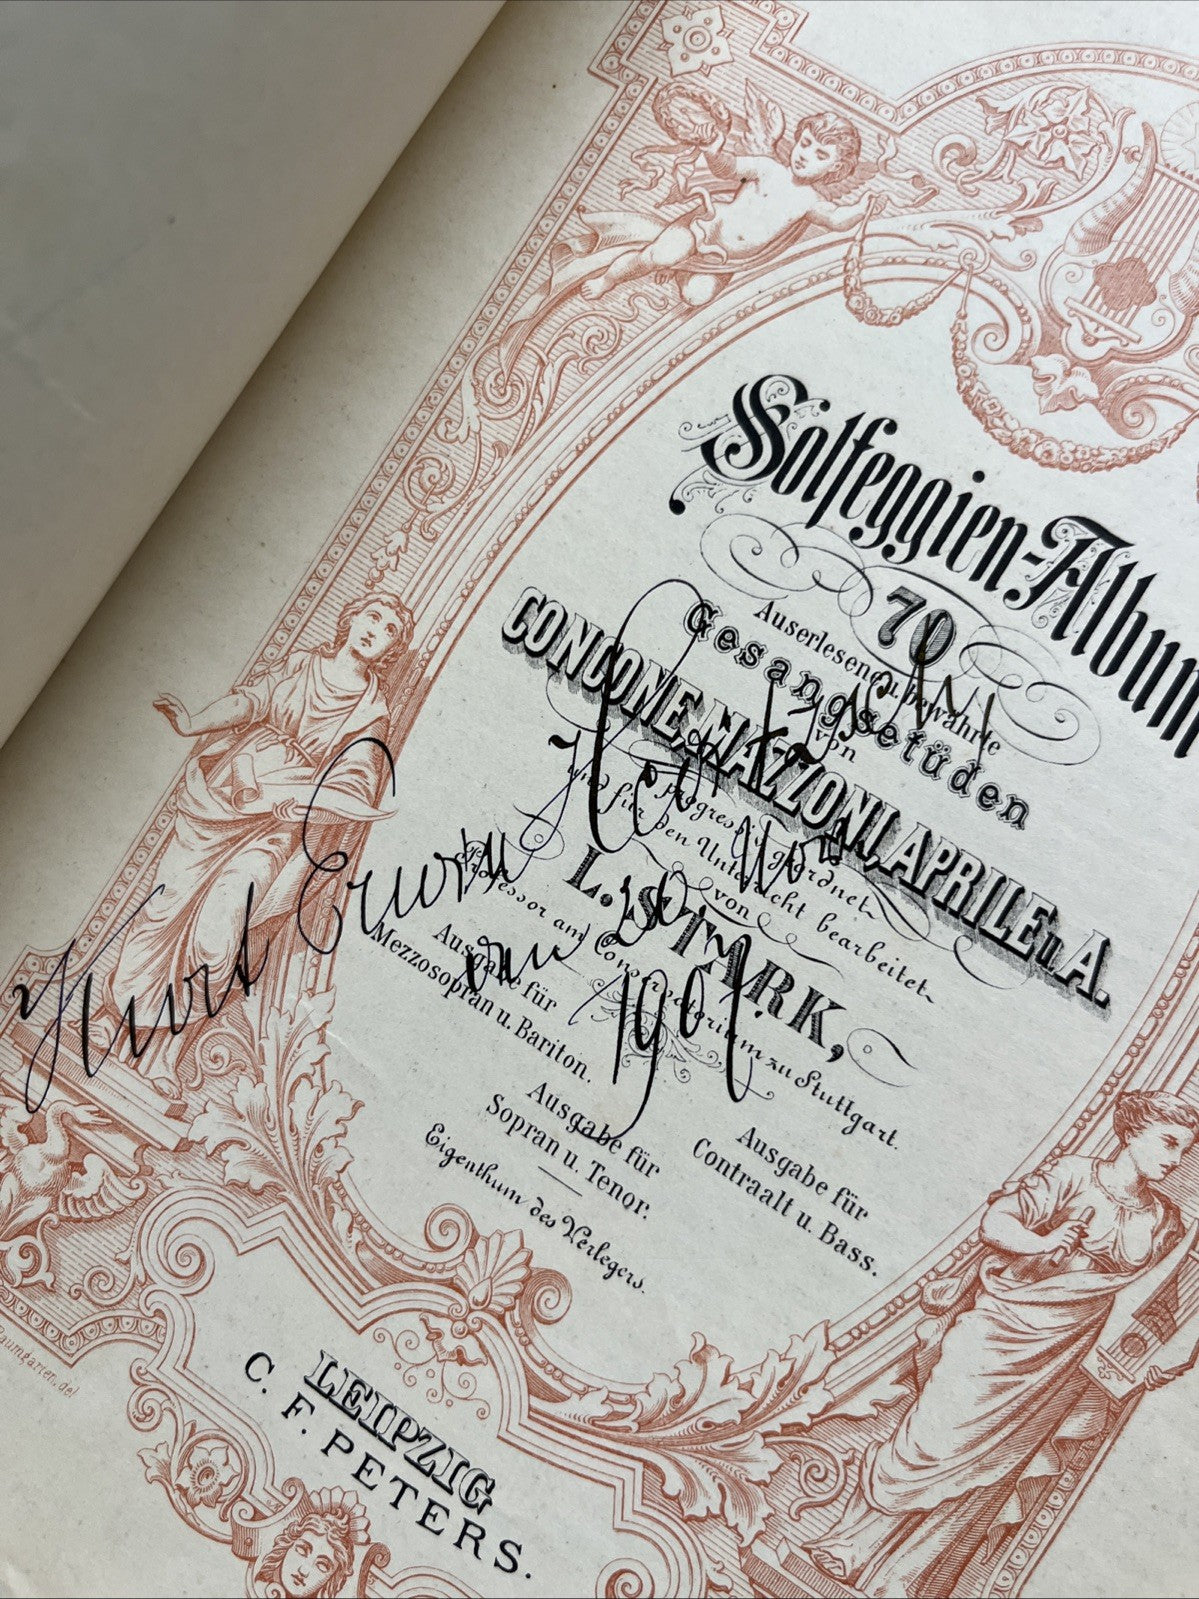 Solfeggien-Album
70
Auserlesene u. bewährte
Gesangsetüden
von
CONCONE, MAZZONI, APRILE u. A.
Progressiv geordnet
und für den Unterricht bearbeitet
von
L. STARK,
Professor am Conservatorium zu Stuttgart.
Ausgabe für
Mezzosopran u. Bariton.
Ausgabe für
Sopran u. Tenor.
Ausgabe für
Contraalt u. Bass.
Eigenthum des Verlegers.
Kurt Erwin
1907
LEIPZIG
C. F. PETERS.
Baumgarten, del